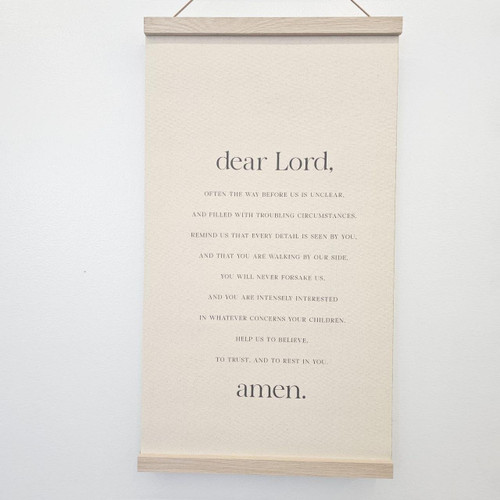 dear Lord,
OFTEN THE WAY BEFORE US IS UNCLEAR,
AND FILLED WITH TROUBLING CIRCUMSTANCES.
REMIND US THAT EVERY DETAIL IS SEEN BY YOU,
AND THAT YOU ARE WALKING BY OUR SIDE.
YOU WILL NEVER FORSAKE US,
AND YOU ARE INTENSELY INTERESTED
IN WHATEVER CONCERNS YOUR CHILDREN.
HELP US TO BELIEVE,
TO TRUST, AND TO REST IN YOU.
amen.